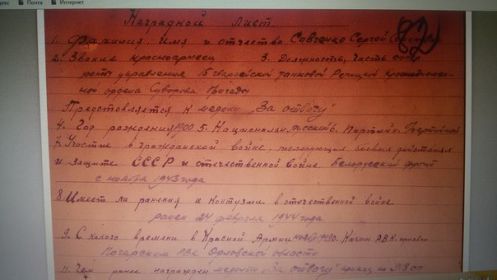 Почта Интернет
Наградной Лист
82
1. Фамилия, Имя и отчество Савченко Сергей
2. Звание красноармеец 3. Должность, часть
роты управления 15 Гвардейской танковой Речицкой Краснознамен-
ного ордена Суворова бригады
Представляется к медали „За отвагу“
4. Год рождения 1900 5. Национальность 6. Партийн. Беспартийный
7. Участие в гражданской войне, последующих боевых действиях
и защите СССР и отечественной войне Белорусский фронт
с 1943 года
8. Имеет ли ранения и контузии в отечественной войне
ранен 24 февраля 1944 года
9. С какого времени в Красной Армии Каким РВК призван
Погарским РВК Орловской области
11. Чем ранее награжден медаль „За отвагу“